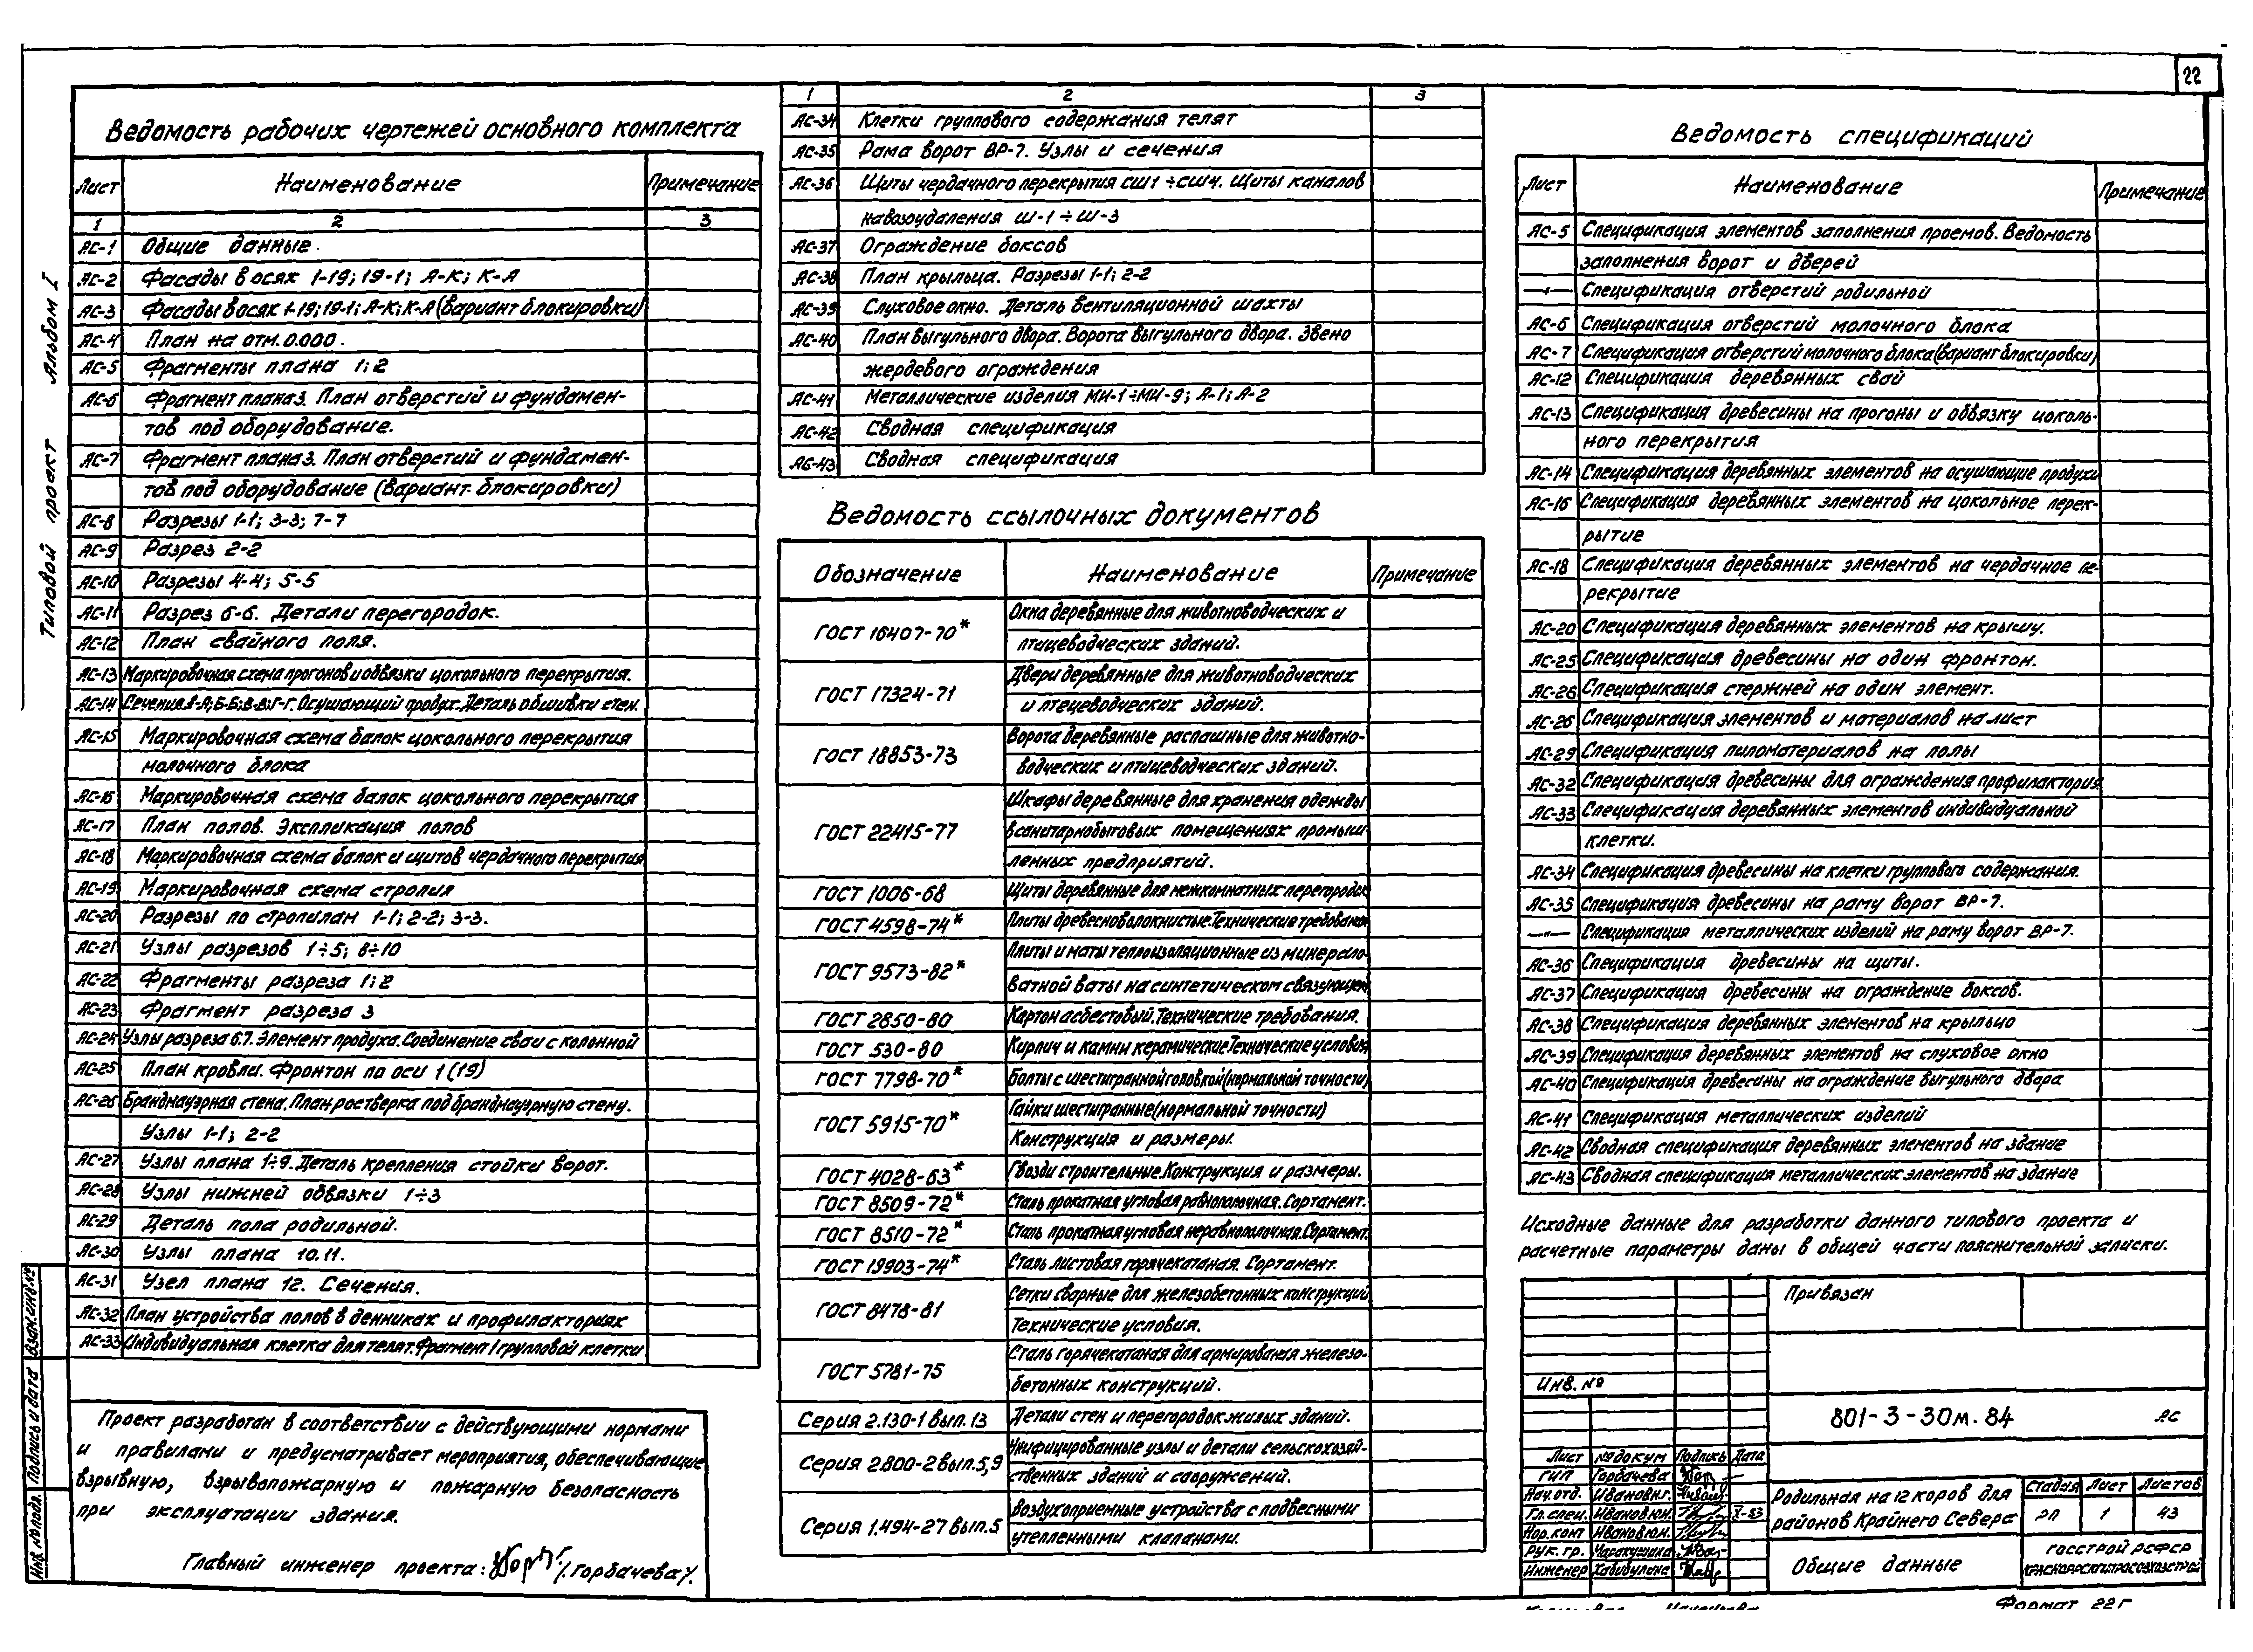 22
Типовой проект Альбом I
Ведомость рабочих чертежей основного комплекта
Лист Наименование Примечание
1 2 3
АС-1 Общие данные.
АС-2 Фасады в осях 1-19; 19-1; А-К; К-А
АС-3 Фасады в осях 1-19; 19-1; А-К; К-А (вариант блокировки)
АС-4 План на отм. 0.000.
АС-5 Фрагменты плана 1; 2
АС-6 Фрагмент плана 3. План отверстий и фундамен-
тов под оборудование.
АС-7 Фрагмент плана 3. План отверстий и фундамен-
тов под оборудование (вариант блокировки)
АС-8 Разрезы 1-1; 3-3; 7-7
АС-9 Разрез 2-2
АС-10 Разрезы 4-4; 5-5
АС-11 Разрез 6-6. Детали перегородок.
АС-12 План свайного поля.
АС-13 Маркировочная схема прогонов и обвязки цокольного перекрытия.
АС-14 Сечения А-А; Б-Б; В-В; Г-Г. Осушающий продух. Деталь обшивки стен.
АС-15 Маркировочная схема балок цокольного перекрытия
молочного блока
АС-16 Маркировочная схема балок цокольного перекрытия
АС-17 План полов. Экспликация полов
АС-18 Маркировочная схема балок и щитов чердачного перекрытия
АС-19 Маркировочная схема стропил
АС-20 Разрезы по стропилам 1-1; 2-2; 3-3.
АС-21 Узлы разрезов 1÷5; 8÷10
АС-22 Фрагменты разреза 1; 2
АС-23 Фрагмент разреза 3
АС-24 Узлы разреза 6.7. Элемент продуха. Соединение сваи с колонной
АС-25 План кровли. Фронтон по оси 1 (19)
АС-26 Брандмауэрная стена. План ростверка под брандмауэрную стену.
Узлы 1-1; 2-2
АС-27 Узлы плана 1÷9. Деталь крепления стойки ворот.
АС-28 Узлы нижней обвязки 1÷3
АС-29 Деталь пола родильной.
АС-30 Узлы плана 10.11.
АС-31 Узел плана 12. Сечения.
АС-32 План устройства полов в денниках и профилакториях
АС-33 Индивидуальная клетка для телят. Фрагмент 1 групповой клетки
Проект разработан в соответствии с действующими нормами
и правилами и предусматривает мероприятия, обеспечивающие
взрывную, взрывопожарную и пожарную безопасность
при эксплуатации здания.
Главный инженер проекта: /Горбачева/.
1 2 3
АС-34 Клетки группового содержания телят
АС-35 Рама ворот ВР-7. Узлы и сечения
АС-36 Щиты чердачного перекрытия СЩ1÷СЩ4. Щиты каналов
навозоудаления Щ-1÷Щ-3
АС-37 Ограждение боксов
АС-38 План крыльца. Разрезы 1-1; 2-2
АС-39 Слуховое окно. Деталь вентиляционной шахты
АС-40 План выгульного двора. Ворота выгульного двора. Звено
жердевого ограждения
АС-41 Металлические изделия МИ-1÷МИ-9; А-1; А-2
АС-42 Сводная спецификация
АС-43 Сводная спецификация
Ведомость ссылочных документов
Обозначение Наименование Примечание
ГОСТ 16407-70* Окна деревянные для животноводческих и
птицеводческих зданий.
ГОСТ 17324-71 Двери деревянные для животноводческих
и птецеводческих зданий.
ГОСТ 18853-73 Ворота деревянные распашные для животно-
водческих и птицеводческих зданий.
ГОСТ 22415-77 Шкафы деревянные для хранения одежды
в санитарнобытовых помещениях промыш-
ленных предприятий.
ГОСТ 1006-68 Щиты деревянные для межкомнатных перегородок
ГОСТ 4598-74* Плиты древесноволокнистые. Технические требования
ГОСТ 9573-82* Плиты и маты теплоизоляционные из минерало-
ватной ваты на синтетическом связующем
ГОСТ 2850-80 Картон асбестовый. Технические требования.
ГОСТ 530-80 Кирпич и камни керамические. Технические условия
ГОСТ 7798-70* Болты с шестигранной головкой (нормальной точности)
ГОСТ 5915-70* Гайки шестигранные (нормальной точности)
Конструкция и размеры.
ГОСТ 4028-63* Гвозди строительные. Конструкция и размеры.
ГОСТ 8509-72* Сталь прокатная угловая равнополочная. Сортамент.
ГОСТ 8510-72* Сталь прокатная угловая неравнополочная. Сортамент.
ГОСТ 19903-74* Сталь листовая горячекатаная. Сортамент.
ГОСТ 8478-81 Сетки сварные для железобетонных конструкций
Технические условия.
ГОСТ 5781-75 Сталь горячекатаная для армирования железо-
бетонных конструкций.
Серия 2.130-1 вып. 13 Детали стен и перегородок жилых зданий.
Серия 2.800-2 вып. 5,9 Унифицированные узлы и детали сельскохозяй-
ственных зданий и сооружений.
Серия 1.494-27 вып. 5 Воздухоприемные устройства с подвесными
утепленными клапанами.
Ведомость спецификаций
Лист Наименование Примечание
АС-5 Спецификация элементов заполнения проемов. Ведомость
заполнения ворот и дверей
—"— Спецификация отверстий родильной
АС-6 Спецификация отверстий молочного блока
АС-7 Спецификация отверстий молочного блока (вариант блокировки)
АС-12 Спецификация деревянных свай
АС-13 Спецификация древесины на прогоны и обвязку цоколь-
ного перекрытия
АС-14 Спецификация деревянных элементов на осушающие продухи
АС-16 Спецификация деревянных элементов на цокольное перек-
рытие
АС-18 Спецификация деревянных элементов на чердачное пе-
рекрытие
АС-20 Спецификация деревянных элементов на крышу.
АС-25 Спецификация древесины на один фронтон.
АС-26 Спецификация стержней на один элемент.
АС-26 Спецификация элементов и материалов на лист
АС-29 Спецификация пиломатериалов на полы
АС-32 Спецификация древесины для ограждения профилактория
АС-33 Спецификация деревянных элементов индивидуальной
клетки.
АС-34 Спецификация древесины на клетки группового содержания.
АС-35 Спецификация древесины на раму ворот ВР-7.
—"— Спецификация металлических изделий на раму ворот ВР-7.
АС-36 Спецификация древесины на щиты.
АС-37 Спецификация древесины на ограждение боксов.
АС-38 Спецификация деревянных элементов на крыльцо
АС-39 Спецификация деревянных элементов на слуховое окно
АС-40 Спецификация древесины на ограждение выгульного двора
АС-41 Спецификация металлических изделий
АС-42 Сводная спецификация деревянных элементов на здание
АС-43 Сводная спецификация металлических элементов на здание
Исходные данные для разработки данного типового проекта и
расчетные параметры даны в общей части пояснительной записки.
Привязан
Инв. №
801-3-30м.84 АС
Лист № докум Подпись Дата
ГИП Горбачева
Нач. отд. Иванов н.г.
Гл. спец. Иванов ю.н. X-83
Нор. конт Иванов ю.н.
Рук. гр.
Инженер Хабибулина
Родильная на 12 коров для
районов Крайнего Севера
Стадия Лист Листов
РП 1 43
Общие данные
ГОССТРОЙ РСФСР
Формат 22Г
Взам. инв. №
Подпись и дата
Инв. № подл.